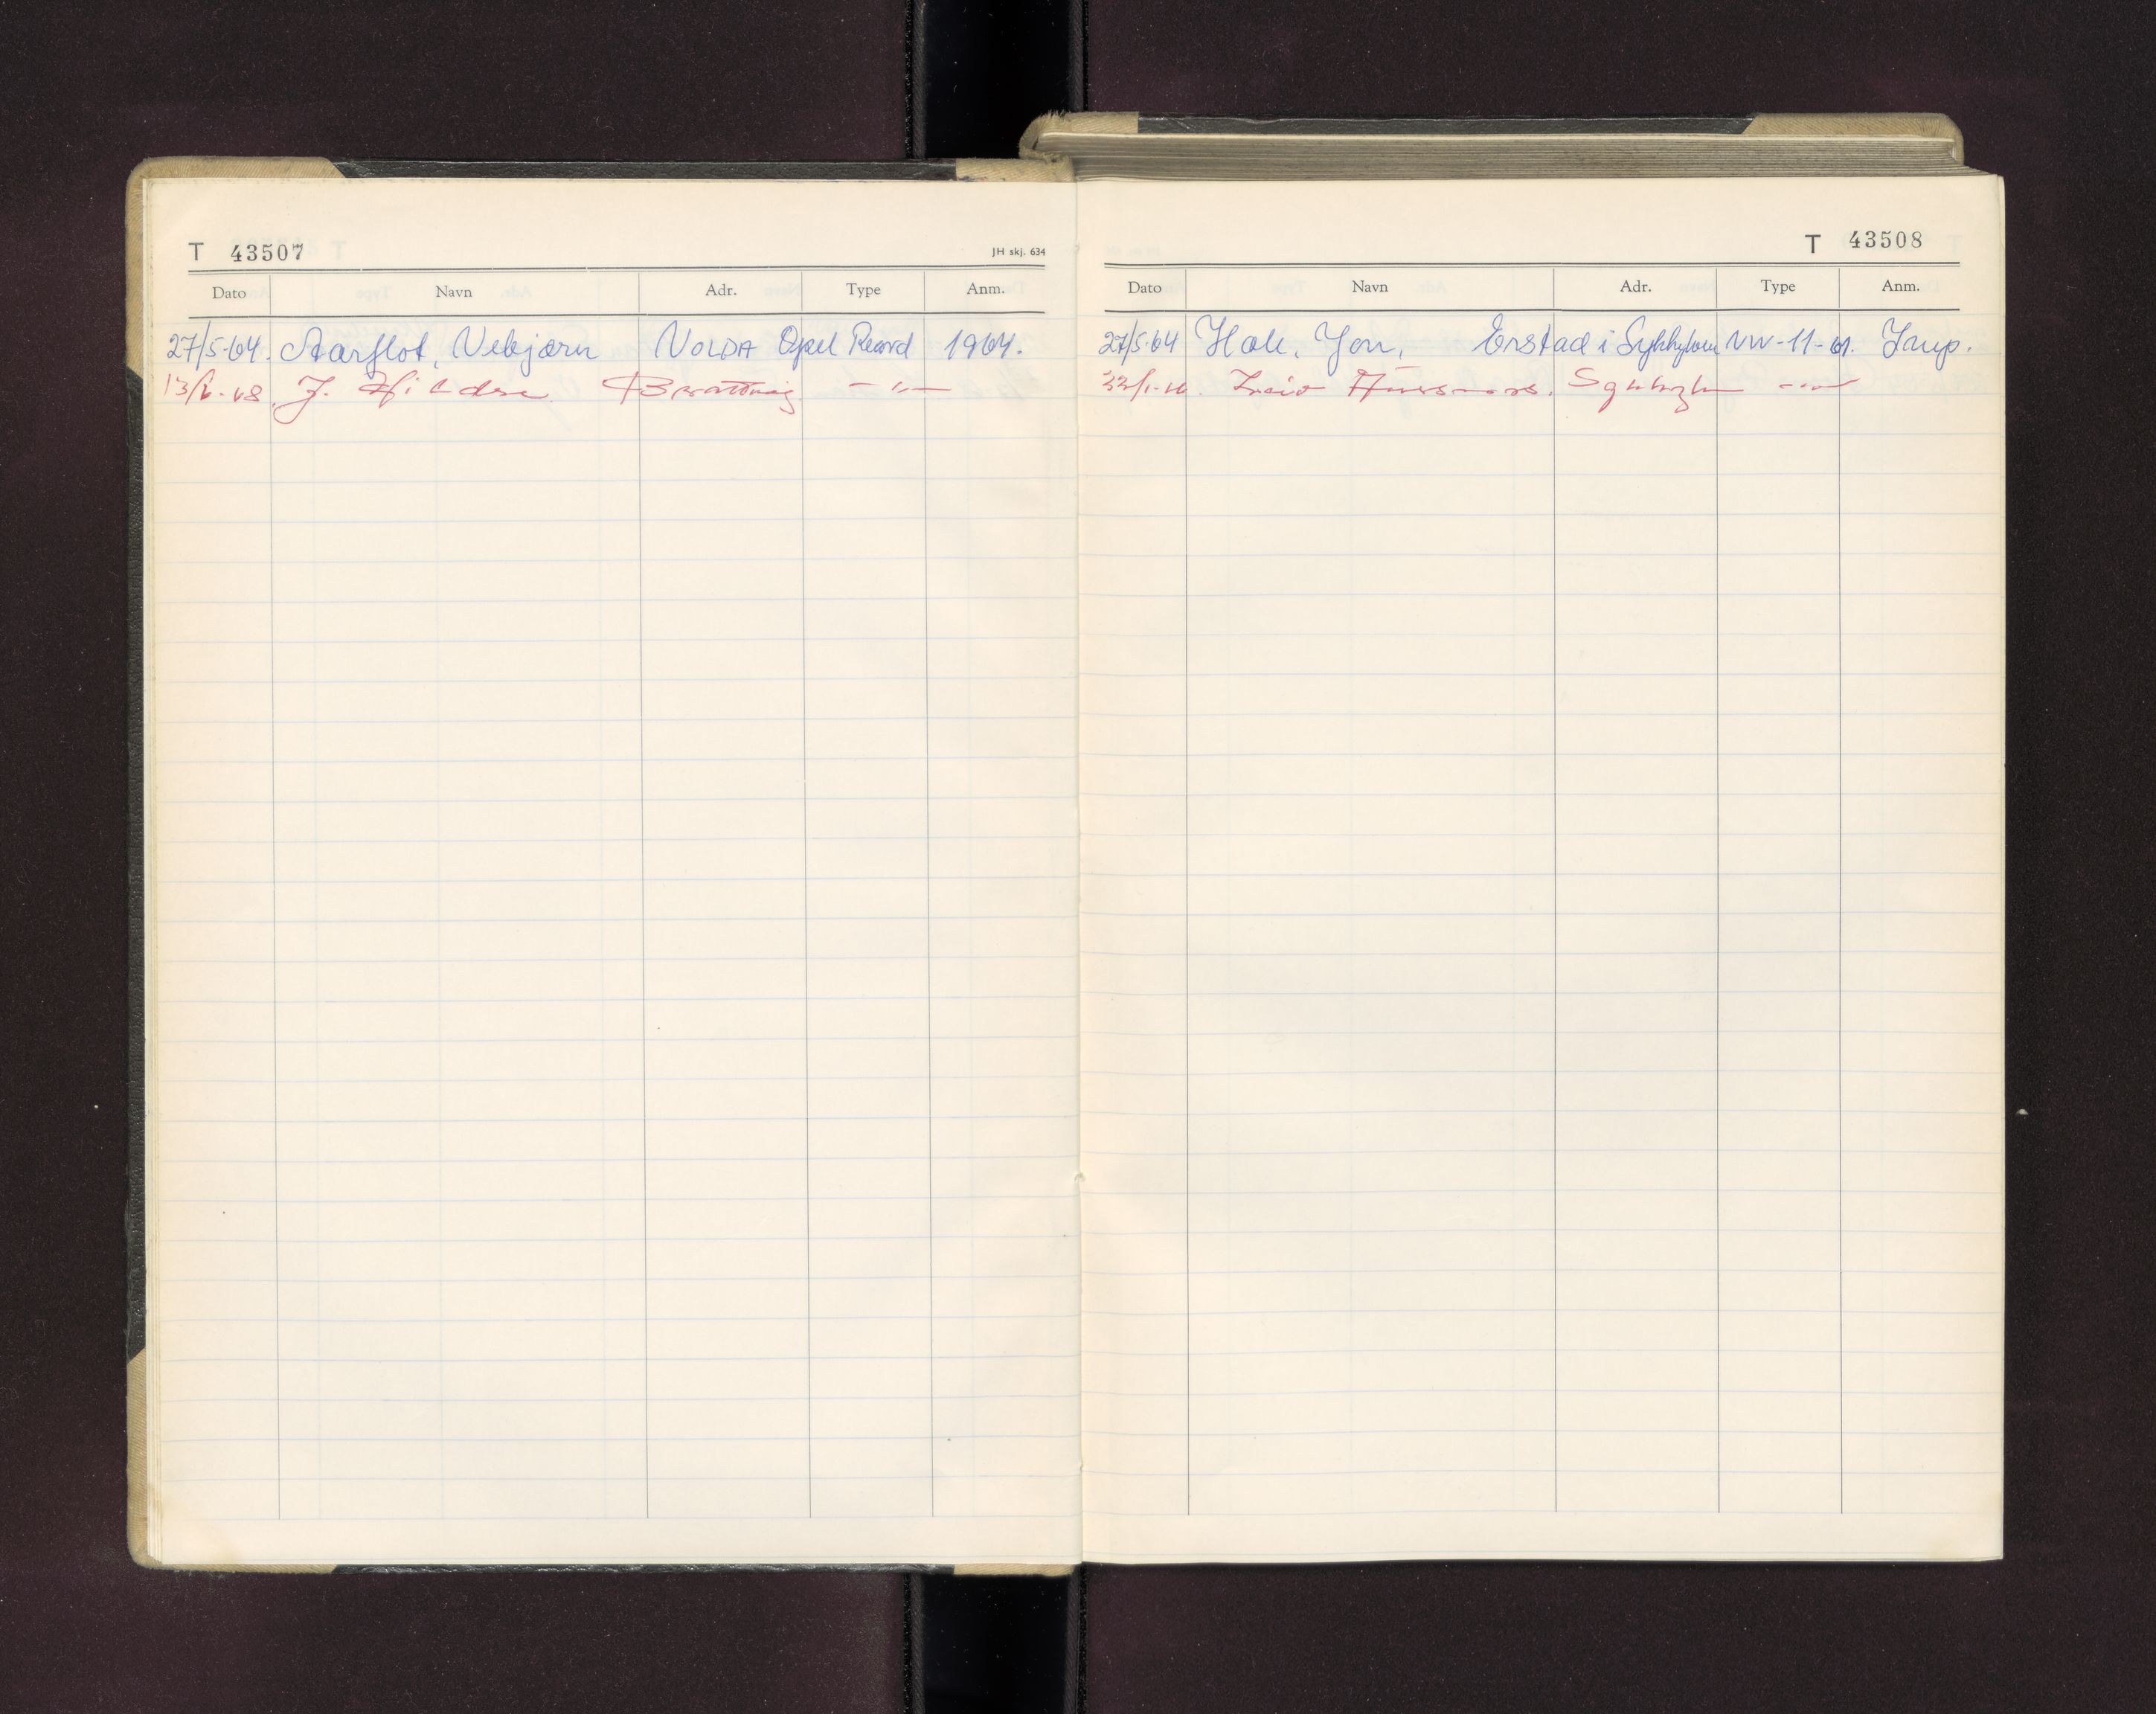 T 43507
JH skj. 634
Dato Navn Adr. Type Anm.
27/5-64. Aarflot, Vebjørn VOLDA Opel Record 1964.
13/6-68. J. Hildre Brattvåg — " —
T 43508
Dato Navn Adr. Type Anm.
27/5-64 Hole, Jon, Erstad i Sykkylven VW-11-61.